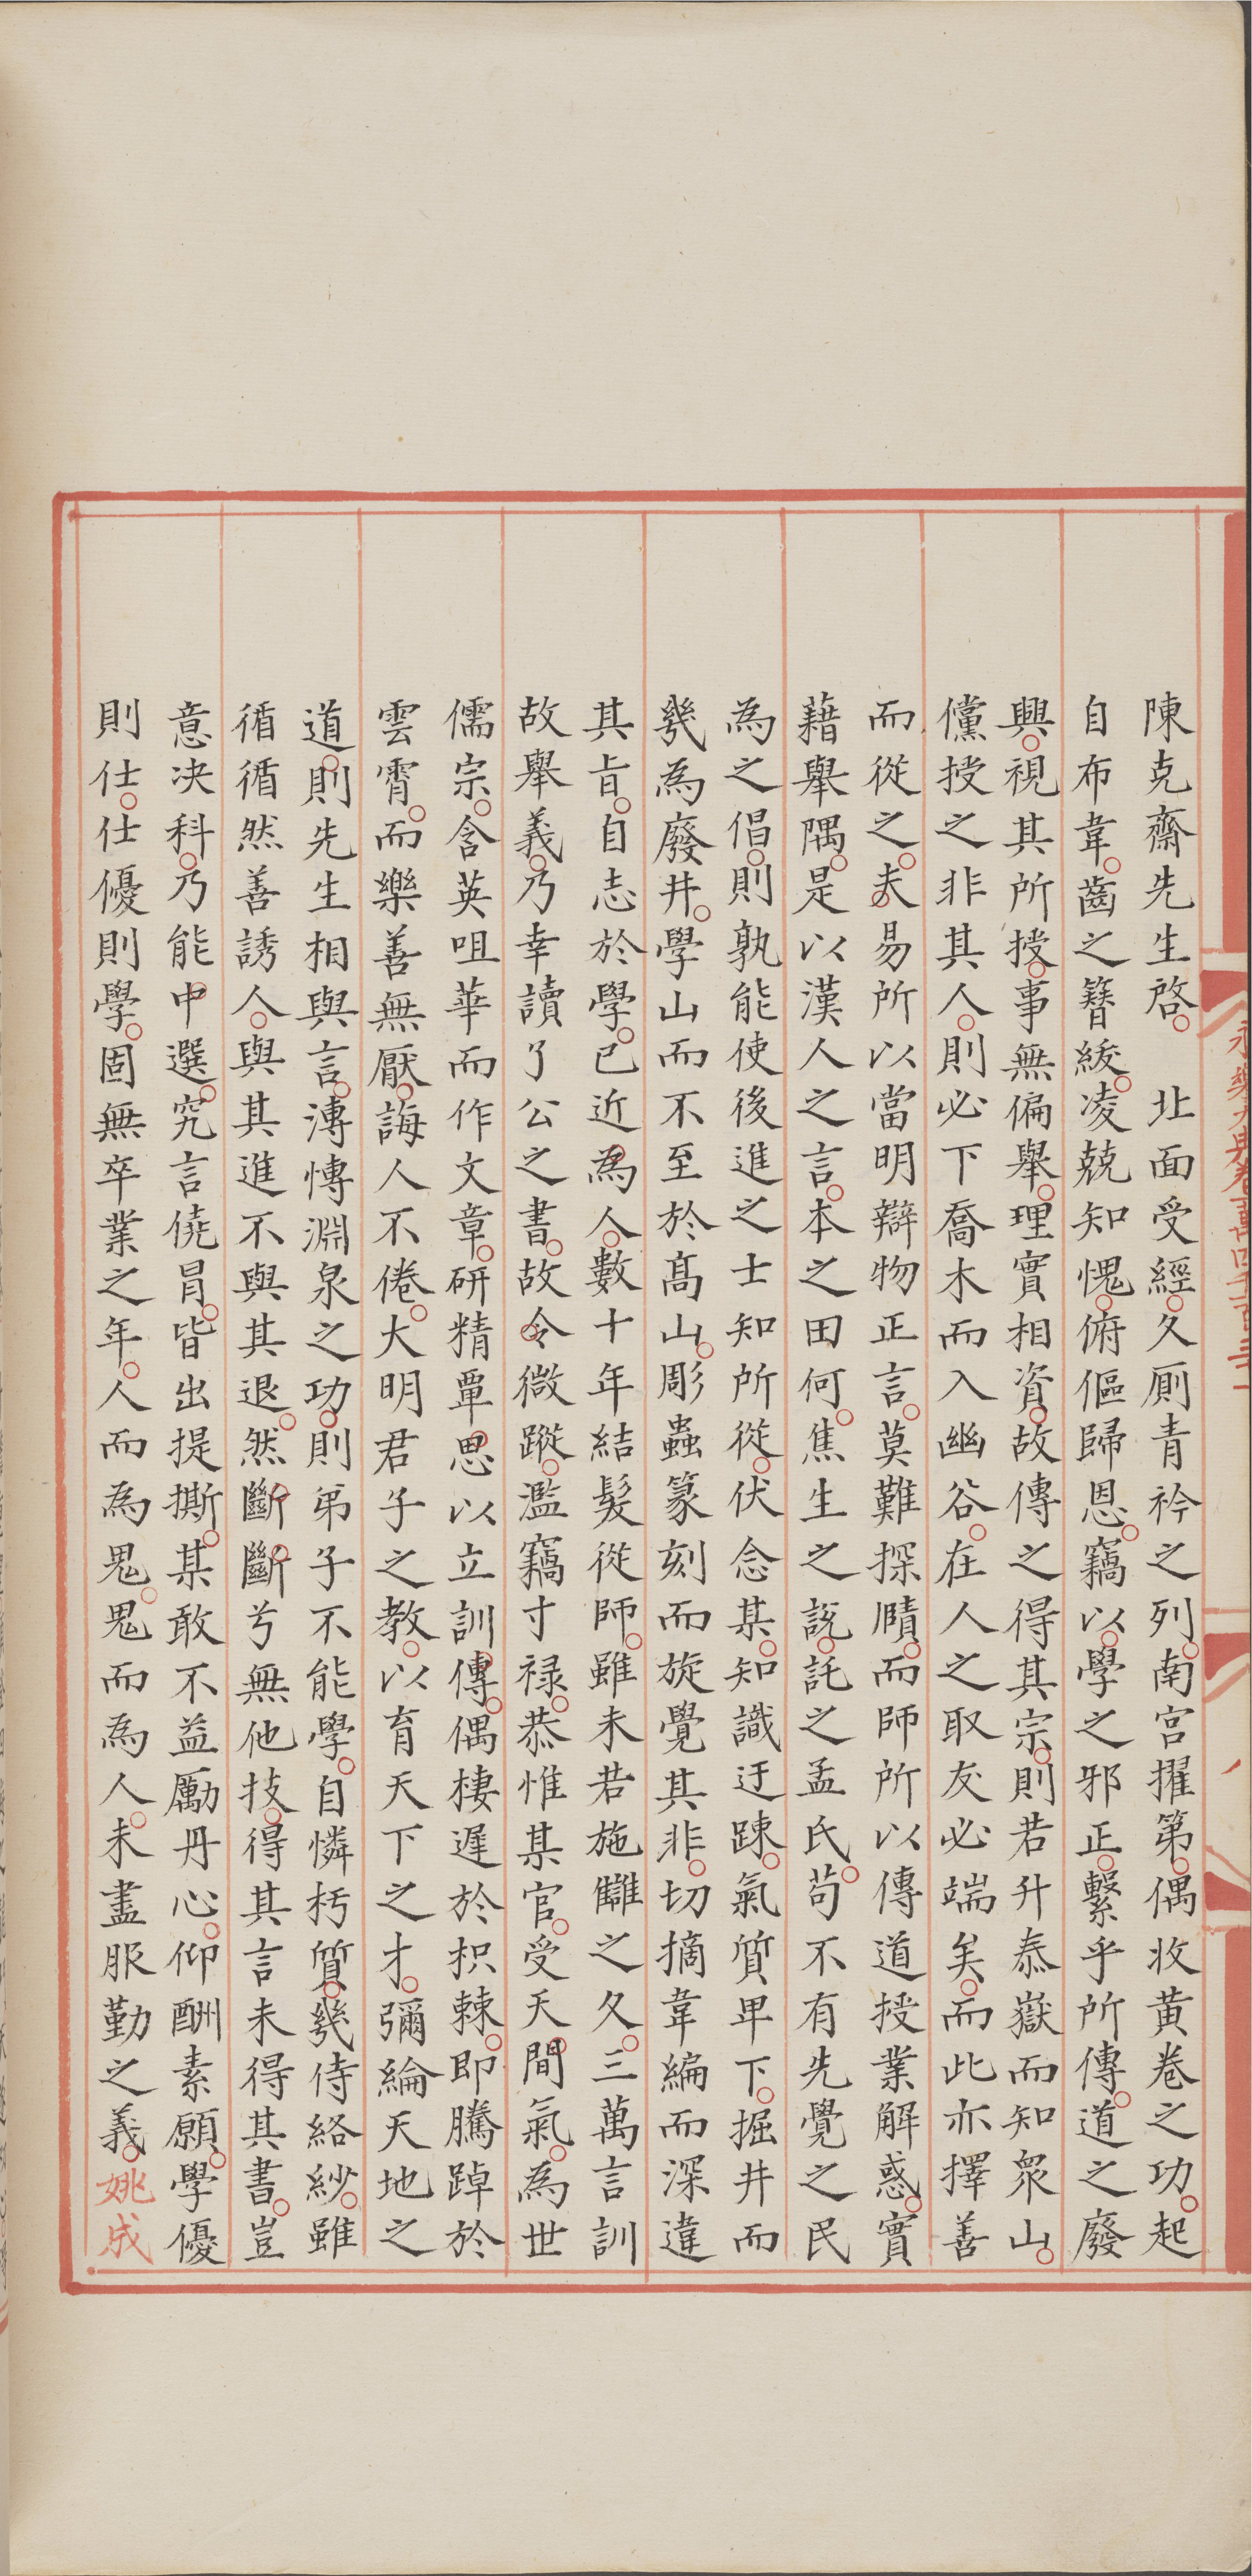 陳克齋先生啓。 北面受經。久厠青衿之列。南宫擢第。偶收黄卷之功。起
自布韋。齒之簪綬。凌兢知愧。俯傴歸恩。竊以。學之邪正。繫乎所傳。道之廢
興。視其所授。事無偏舉。理實相資。故傳之得其宗。則若升泰嶽而知衆山。
儻授之非其人。則必下喬木而入幽谷。在人之取友必端矣。而此亦擇善
而從之。夫。易所以當明辯物正言。莫難探賾。而師所以傳道授業解惑。實
藉舉隅。是以漢人之言。本之田何。焦生之説。託之孟氏。茍不有先覺之民
為之倡。則孰能使後進之士知所從。伏念某。知識迂踈。氣質卑下。掘井而
㡬為廢井。學山而不至於髙山。彫蟲篆刻而旋覺其非。切摘韋編而深違
其旨。自志於學。已近為人。數十年結髮從師。雖未若施讎之久。三萬言訓
故舉義。乃幸讀了公之書。故令微蹤。濫竊寸禄。恭惟某官。受天間氣。為世
儒宗。含英咀華而作文章。研精覃思以立訓傳。偶棲遲於枳棘。即騰踔於
雲霄。而樂善無厭。誨人不倦。大明君子之教。以育天下之才。彌綸天地之
道。則先生相與言。溥慱淵泉之功。則弟子不能學。自憐朽質。㡬侍絡紗。雖
循循然善誘人。與其進不與其退。然斷斷兮無他技。得其言未得其書。豈
意决科。乃能中選。究言僥冐。皆出提撕。某敢不益勵丹心。仰酬素願。學優
則仕。仕優則學。固無卒業之年。人而為鬼。鬼而為人。未盡服勤之義。姚成